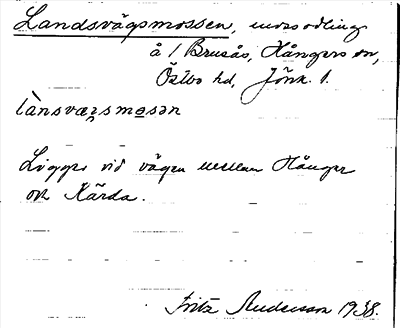 Landsvägsmossen, mossodling
å 1 Brusås, Hångers sn,
Östbo hd, Jönk. l.
lànsvæ̀gsmosən
Ligger vid vägen mellan Hånger
och Kärda.
Fritz Anderson 1938.